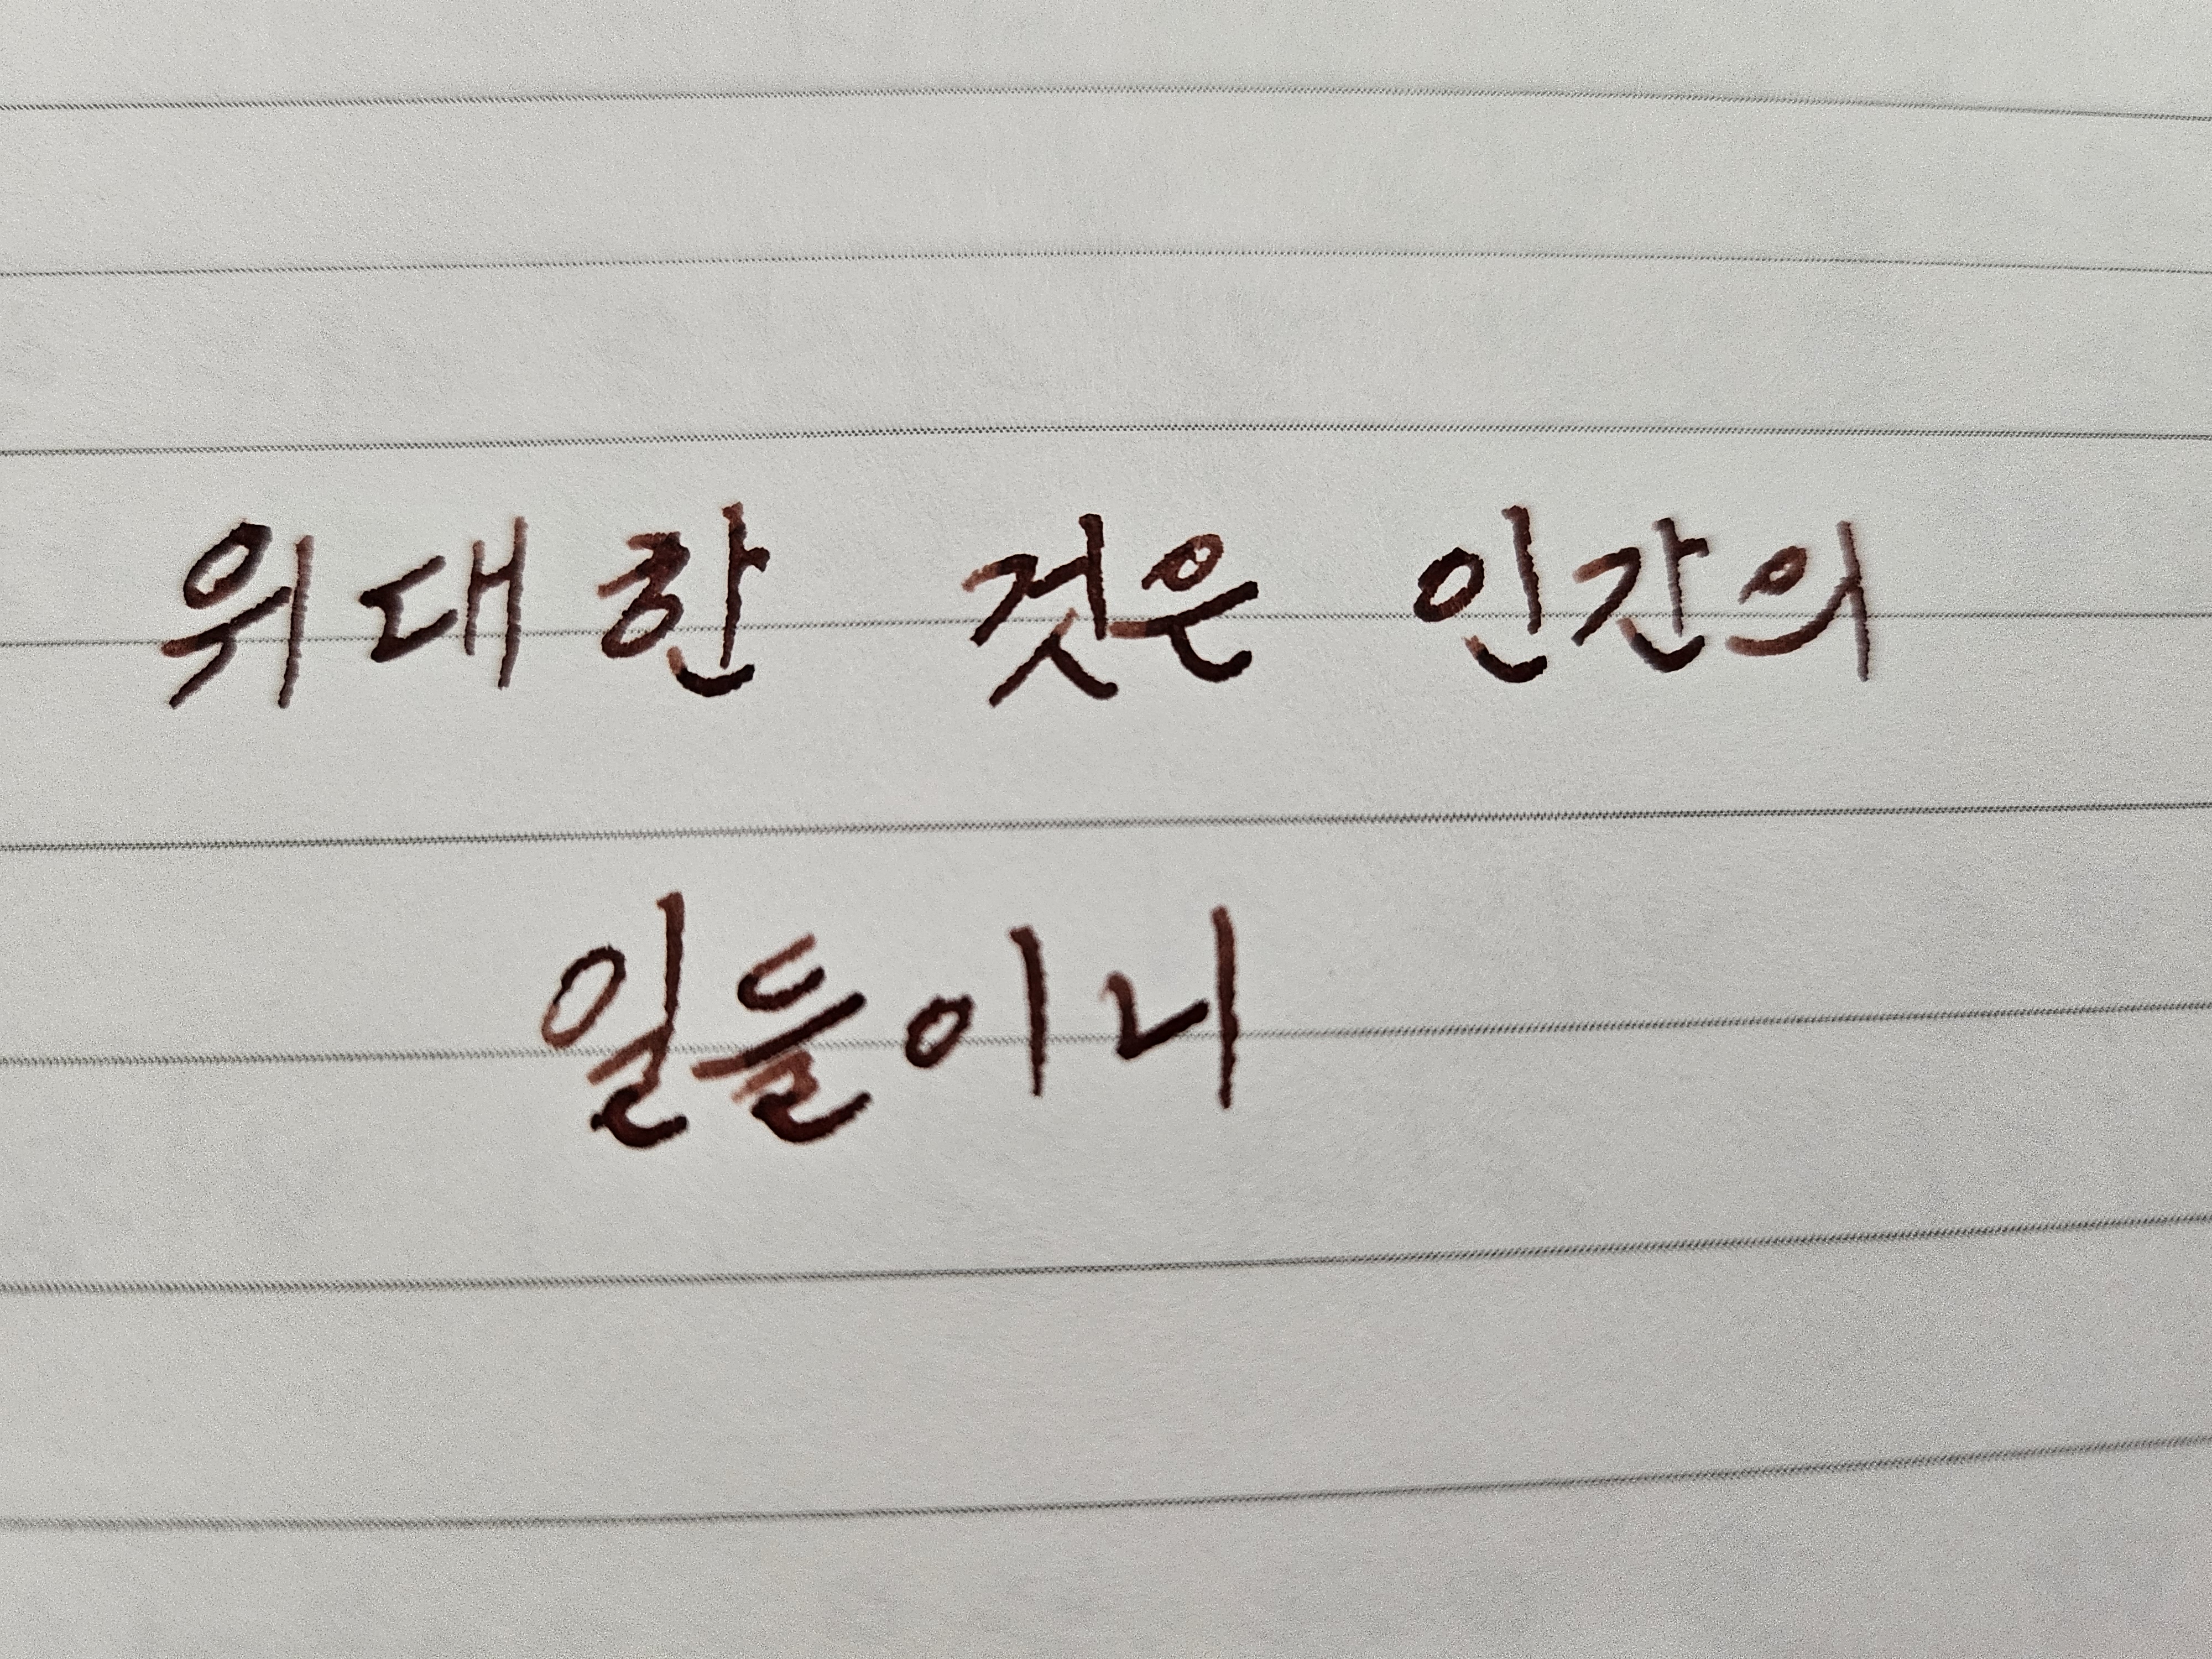 위대한 것은 인간의
일들이니